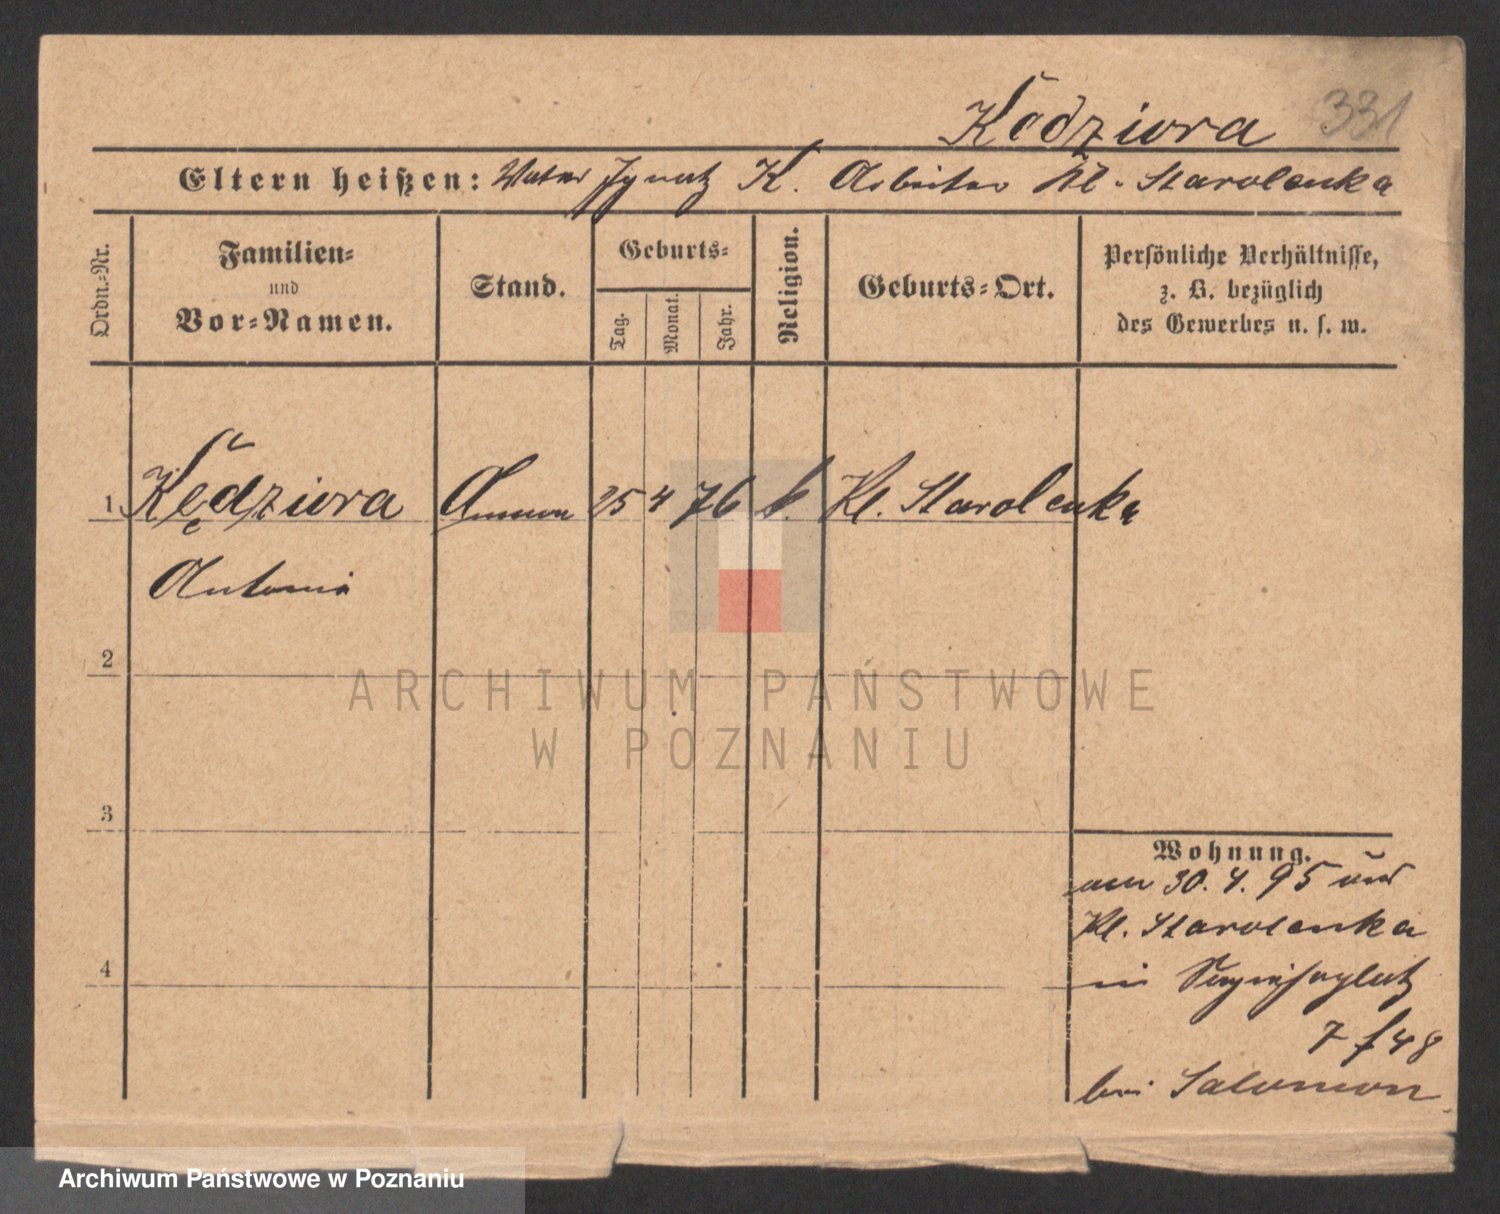 331
Kędziora
Eltern heißen: Vater Ignatz K. Arbeiter Kl. Starolenka
Ordn.-Nr.
Familien-
und
Vor-Namen.
Stand.
Geburts-
Tag.
Monat.
Jahr.
Religion.
Geburts-Ort.
Persönliche Verhältnisse,
z. B. bezüglich
des Gewerbes u. s. w.
1 Kędziora Amme 25 4 76 k. Kl. Starolenka
Antonie
2
3
4
Wohnung.
am 30. 4. 95 aus
Kl. Starolenka
in
7 f 48
bei Salomon
ARCHIWUM PAŃSTWOWE
W POZNANIU
Archiwum Państwowe w Poznaniu